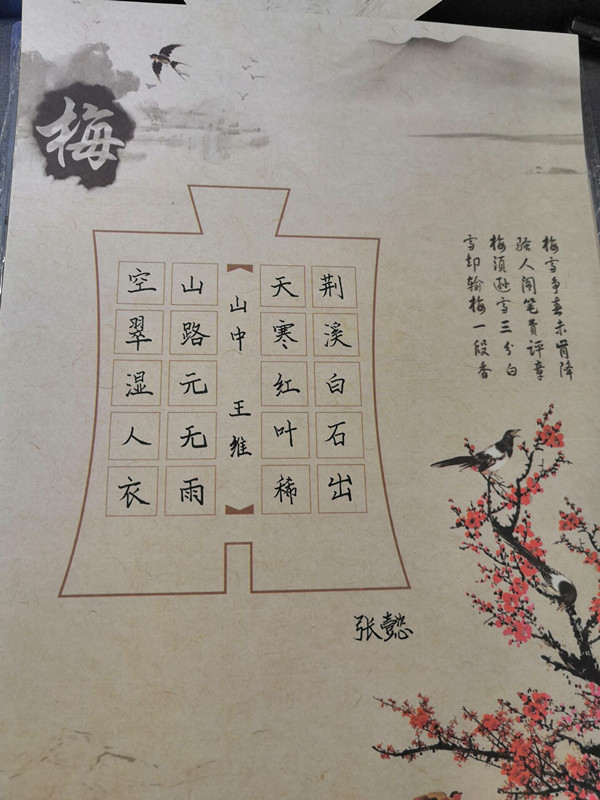 梅
梅雪争春未肯降
骚人阁笔费评章
梅须逊雪三分白
雪却输梅一段香
荆溪白石出
天寒红叶稀
山中 王维
山路元无雨
空翠湿人衣
张懿